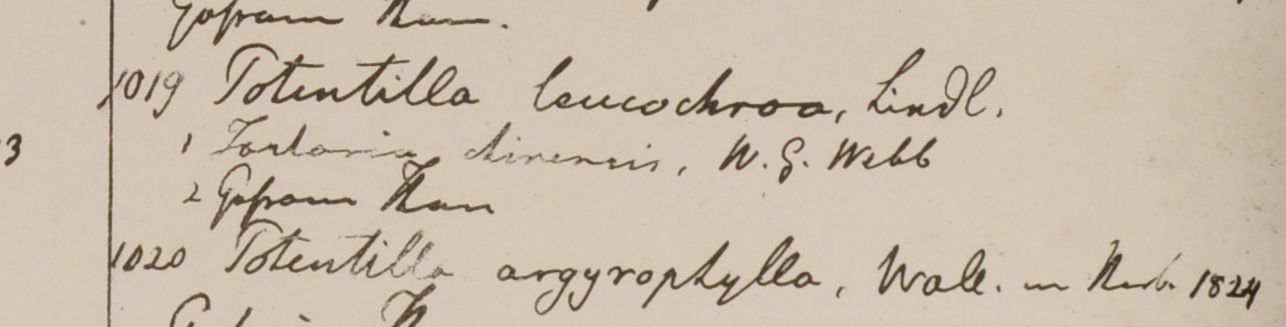 1019 Potentilla leucochroa, Lindl.
1 Tartaria chinensis, W. G. Webb
2 Gossam Than
1020 Potentilla argyrophylla, Wall. in Herb. 1824